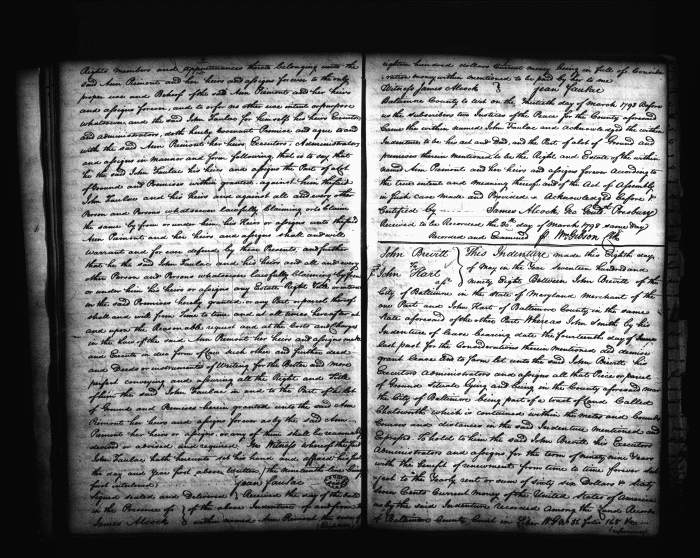 Rights members and appurtenances thereto belonging unto the
said Ann Piemont and her heirs and assigns forever to the only
proper use and Behoof of the said Ann Piemont and her heirs
and assigns forever, and to or for no other use intent or purpose
whatsoever, and the said John Faulac for himself his heirs Executors
and administrators, doth hereby covenant Promise and agree to and
with the said Ann Piemont her heirs Executors, Administrators,
and assigns in manner and form following, that is to say, that
he the said John Faulac his heirs and assigns the Part of a Lot
of Ground and Premises within granted, against him the said
John Faulac and his heirs and against all and every other
Person and Persons whatsoever lawfully Claiming or to claim
the same by from or under him, his heirs or assigns unto the said
Ann Piemont and her heirs and assigns shall and will
warrant and for ever defend by these Presents, and further
that he the said John Faulac and his heirs and all and every
other Person and Persons whatsoever lawfully Claiming by from
or under him his heirs or assigns any Estate Right Title or interest
in the said Premises hereby granted, or any Part or parcel thereof
shall and will from Time to time and at all times hereafter at
and upon the Reasonable request and at the Costs and Charges
in the Law of the said Ann Piemont her heirs and assigns make
and Execute in due form of Law such other and further deed
and Deeds or instruments of Writing for the Better and more
perfect conveying and assuring all the Right and Title
of him the said John Faulac in and to the Part of a Lot
of Ground and Premises herein granted unto the said Ann
Piemont her heirs and assigns forever as by the said Ann
Piemont her heirs or assigns or any of them shall be reasonably
devised or advised and required. In Witness whereof the said
John Faulac hath hereunto set his hand and affixed his seal
the day and year first above Written
first interlined jean faulac
Signed Sealed and Delivered Received the day of the date
in the Presence of of the above Indenture of and from the
James Alcock within named Ann Piemont
eighteen hundred dollars current money being in full of Conside-
ration money within mentioned to be paid by her to me
Witness James Alcock jean faulac
Baltimore County to wit on the Thirtieth day of March 1798 Before
us the subscribers two Justices of the Peace for the County aforesaid
Came the within named John Faulac and Acknowledged the within
Indenture to be his act and Deed, and the Part of a lot of Ground and
premises therein mentioned to be the Right and Estate of the within
named Ann Piemont and her heirs and assigns forever According to
the true intent and meaning thereof and of the Act of Assembly
in such case made and Provided Acknowledged Before &
Certified by James Alcock Geo Goulds. Presbury
Received to be Recorded the 30th day of March 1798 same day
Recorded and Examined Wm Gibson Clk
John Brevitt This Indenture made this Eighth day
To of May in the Year Seventeen hundred and
John Hart ninety Eight Between John Brevitt of the
City of Baltimore in the State of Maryland Merchant of the
one Part and John Hart of Baltimore County in the same
State aforesaid of the other Part. Whereas John Smith by his
Indenture of Lease bearing date the fourteenth day of June
last past for the Consideration therein mentioned did demise
grant Lease and to farm let unto the said John Brevitt his
Executors Administrators and assigns all that Piece or parcel
of Ground Situate lying and being in the County aforesaid near
the City of Baltimore being part of a tract of land Called
Chatsworth which is contained within the metes and bounds
Courses and distances in the said Indenture mentioned and
Expressed To hold to him the said John Brevitt his Executors
Administrators and assigns for the term of ninety nine Years
with the benefit of renewment from time to time forever sub-
ject to the Yearly rent or sum of sixty six Dollars & Sixty
Seven Cents Current money of the United States of America
as by the said Indenture Recorded Among the Land Records
of Baltimore County Court in Liber W.G.